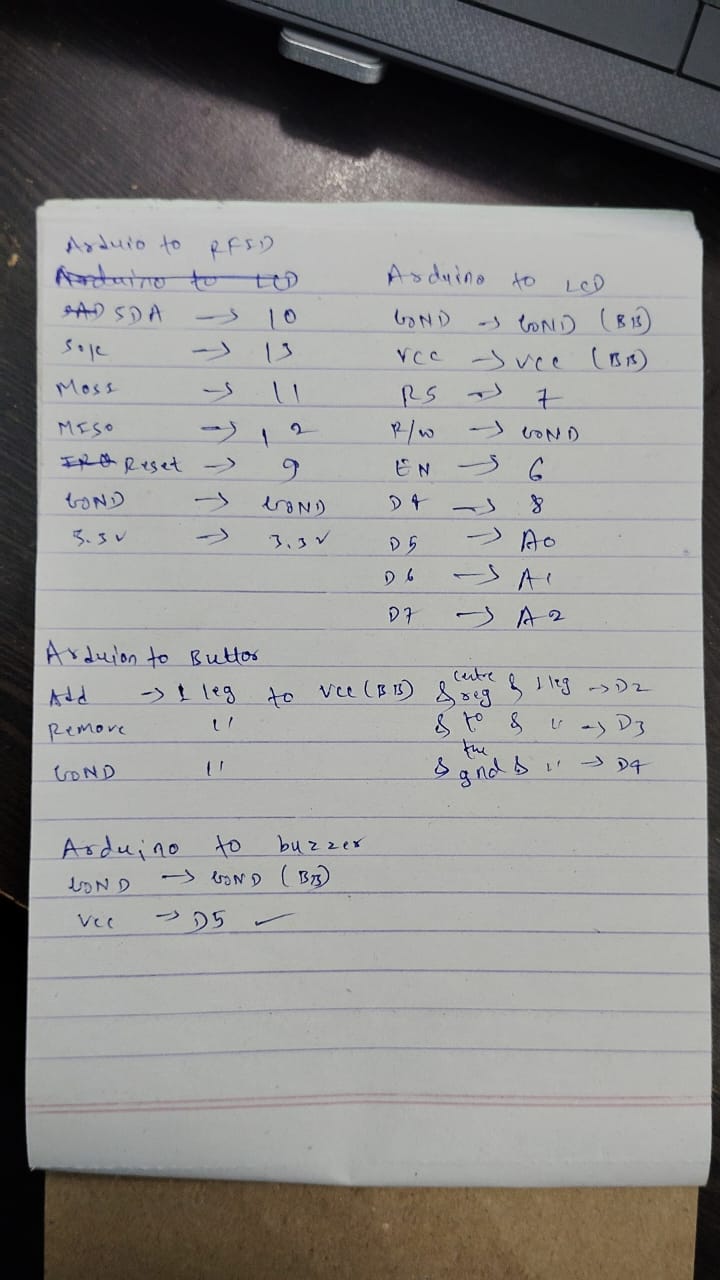 Arduio to RFID
Arduino to LCD
SDA → 10
SCK → 13
MOSI → 11
MISO → 12
IRQ Reset → 9
GND → GND
3.3V → 3.3V
Arduino to LCD
GND → GND (BB)
VCC → VCC (BB)
RS → 7
R/W → GND
EN → 6
D4 → 8
D5 → A0
D6 → A1
D7 → A2
Arduion to Button
Add → 1 leg to VCC (BB) & centre reg & 1 leg → D2
Remove " & to & " → D3
GND " & the gnd & " → D4
Arduino to buzzer
GND → GND (BB)
VCC → D5 ✓